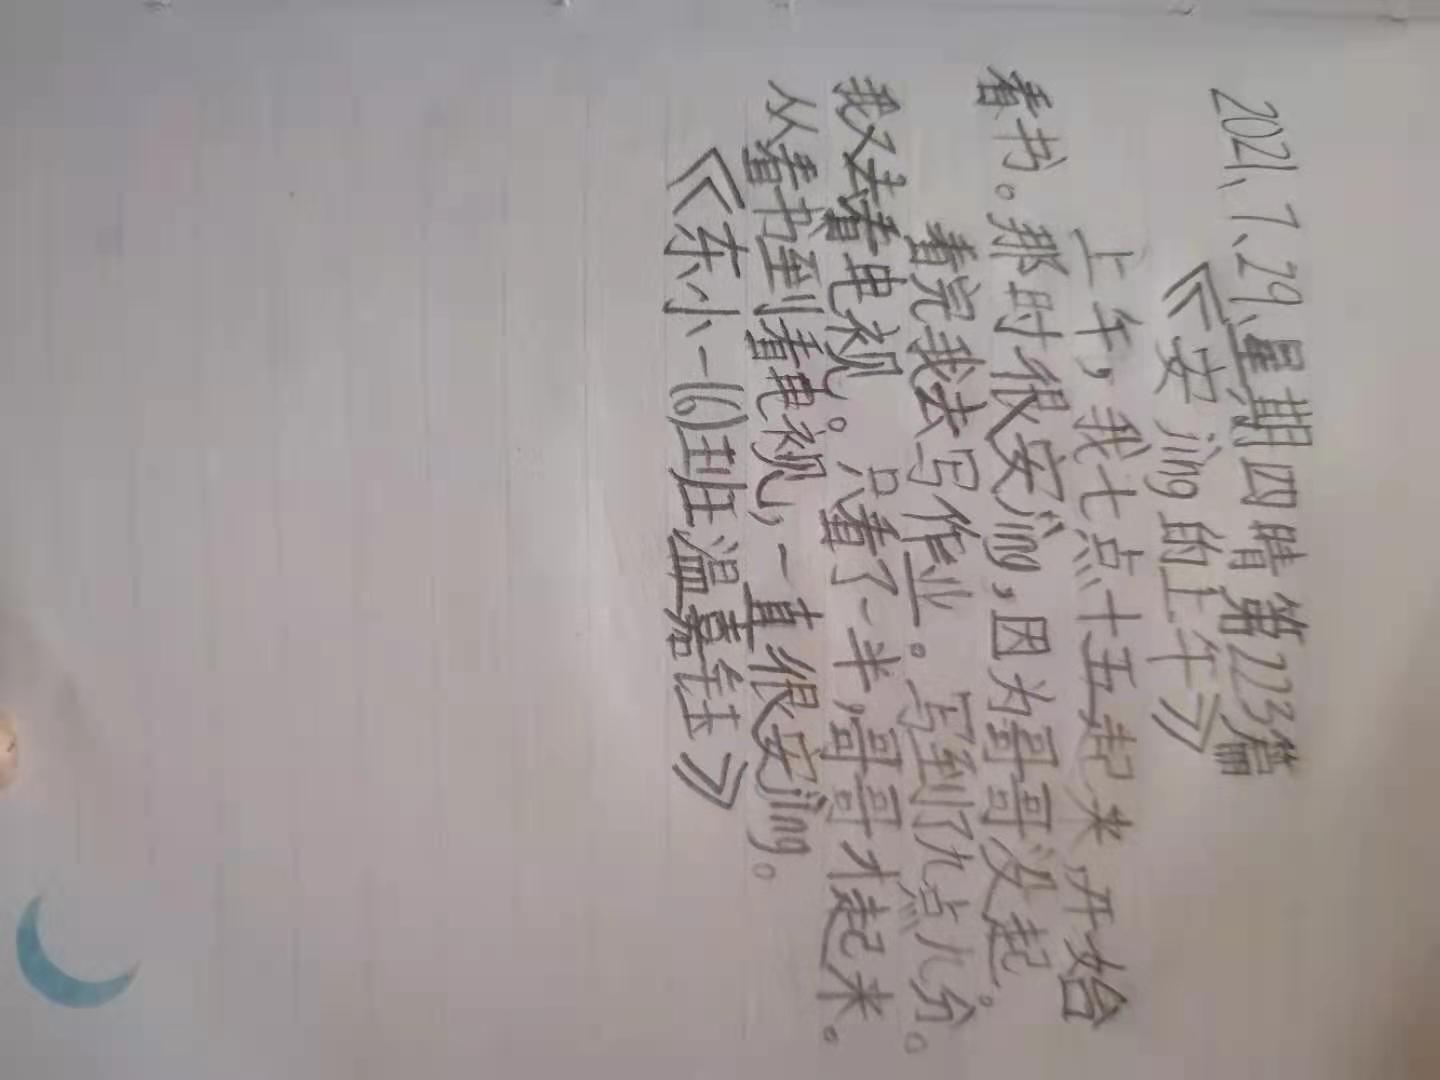 2021、7、29、星期四晴第223篇
《安jing的上午》
上午，我七点十五起来开始
看书。那时很安jing，因为哥哥没起。
看完我去写作业。写到了九点八分。
我又去看电视。只看了一半，哥哥才起来。
从看书到看电视，一直很安jing。
《东小一(6)班温嘉钰》